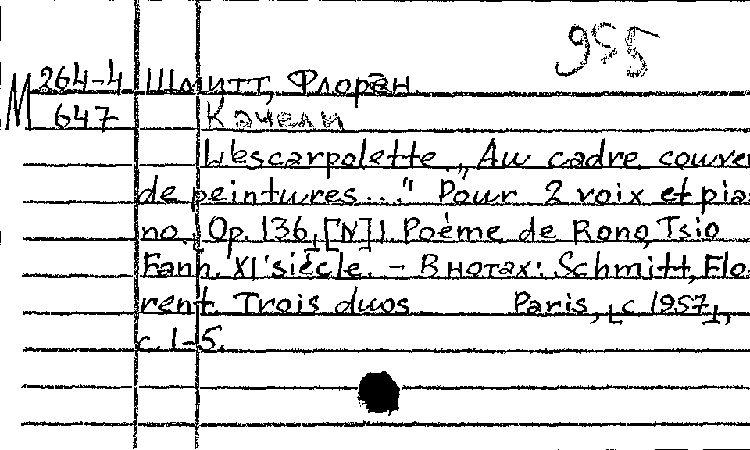 955
M 264-4 Шмитт, Флоран
647 Качели
L'escarpolette. „Au cadre couver
de peintures..." Pour 2 voix et pia-
no. Op. 136, [N] 1. Poème de Rono, Tsio
Fanh. XI' siècle. – В нотах: Schmitt, Flo-
rent. Trois duos Paris, [c 1957],
c. 1-5.